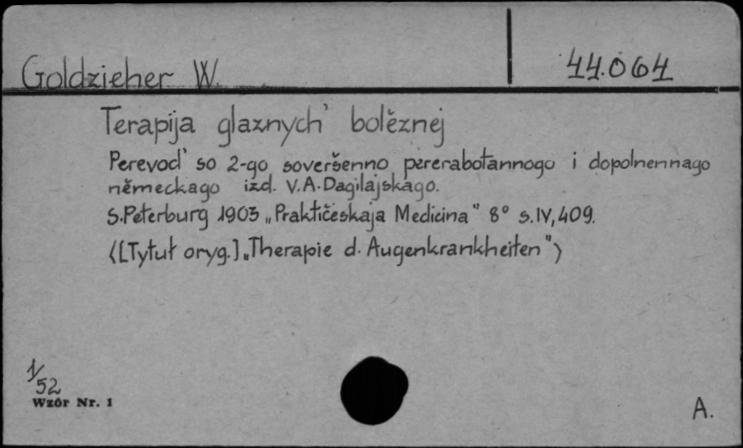 Goldzieher W.
44.064
Terapija glaznych' bolěznej
Perevod' so 2-go soveršenno pererabotannogo i dopolnennago
německago izd. V.A. Dagilajskago.
S.Peterburg 1903 „Praktičeskaja Medicina" 8° s. IV, 409.
([Tytuł oryg.] „Therapie d. Augenkrankheiten")
1/52
Wzór Nr. 1
A.